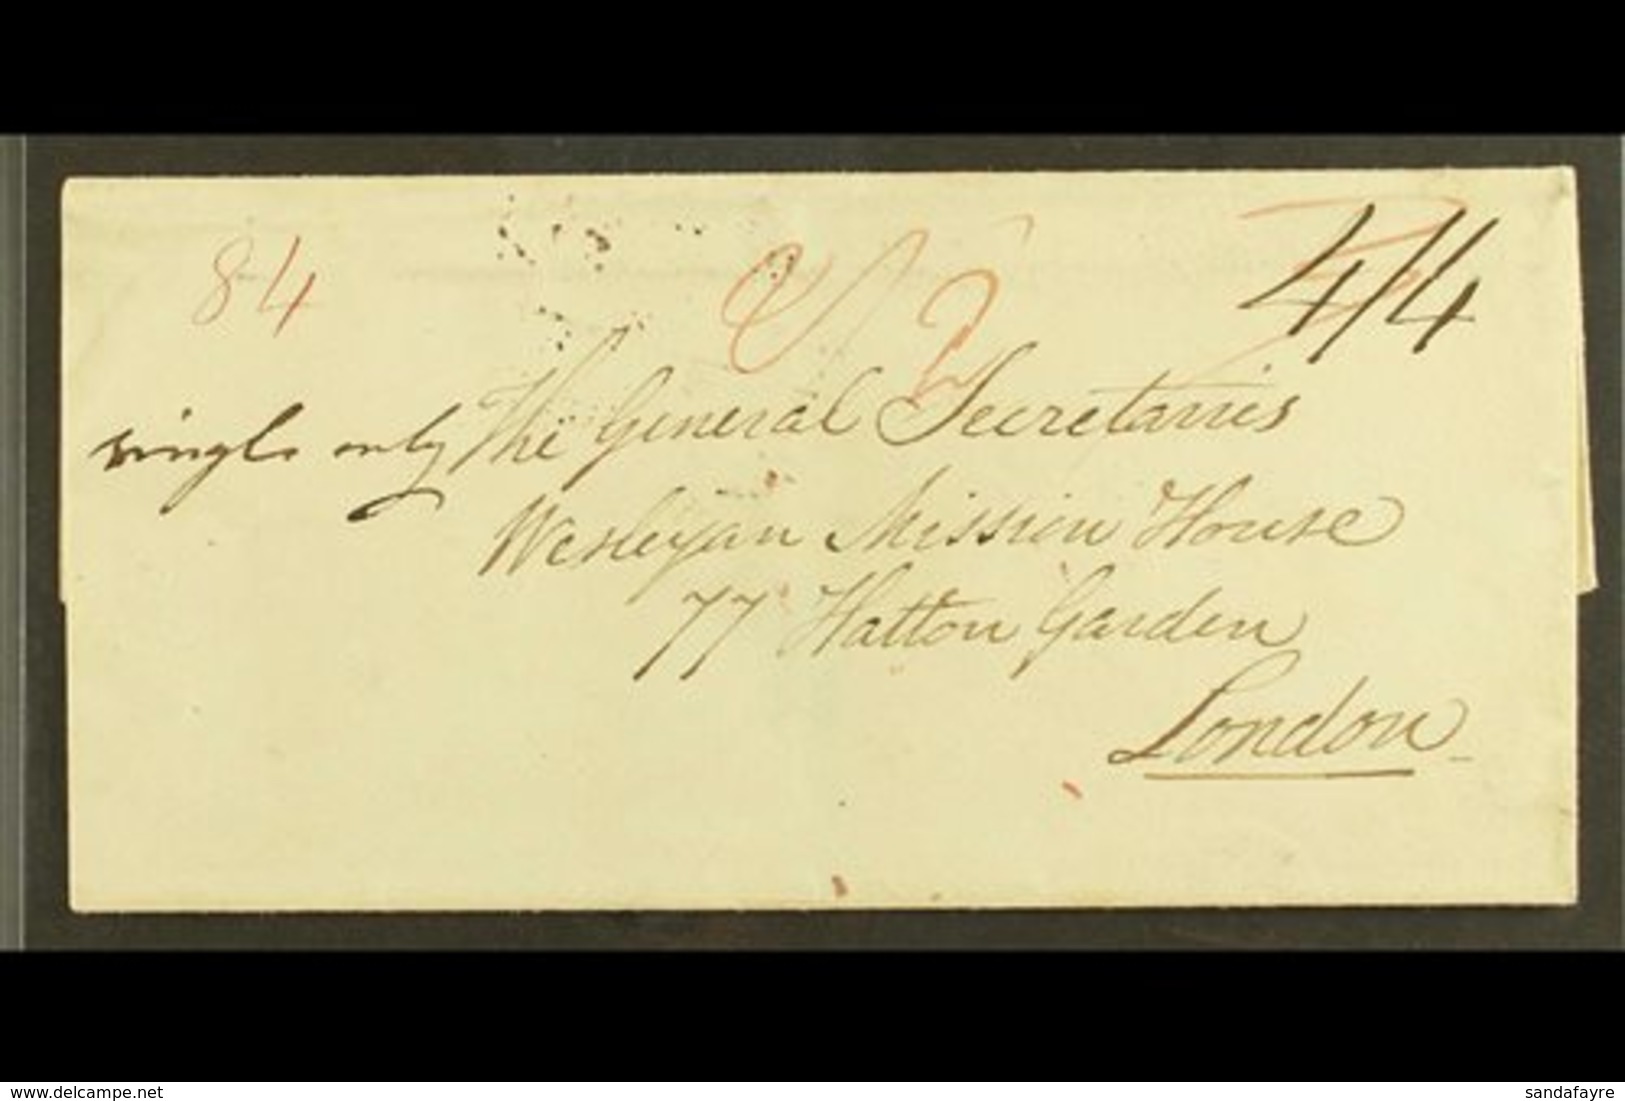 84
4/4
single only
The General Secretaries
Wesleyan Mission House
77 Hatton Garden
London
www.delcampe.net
sandafayre